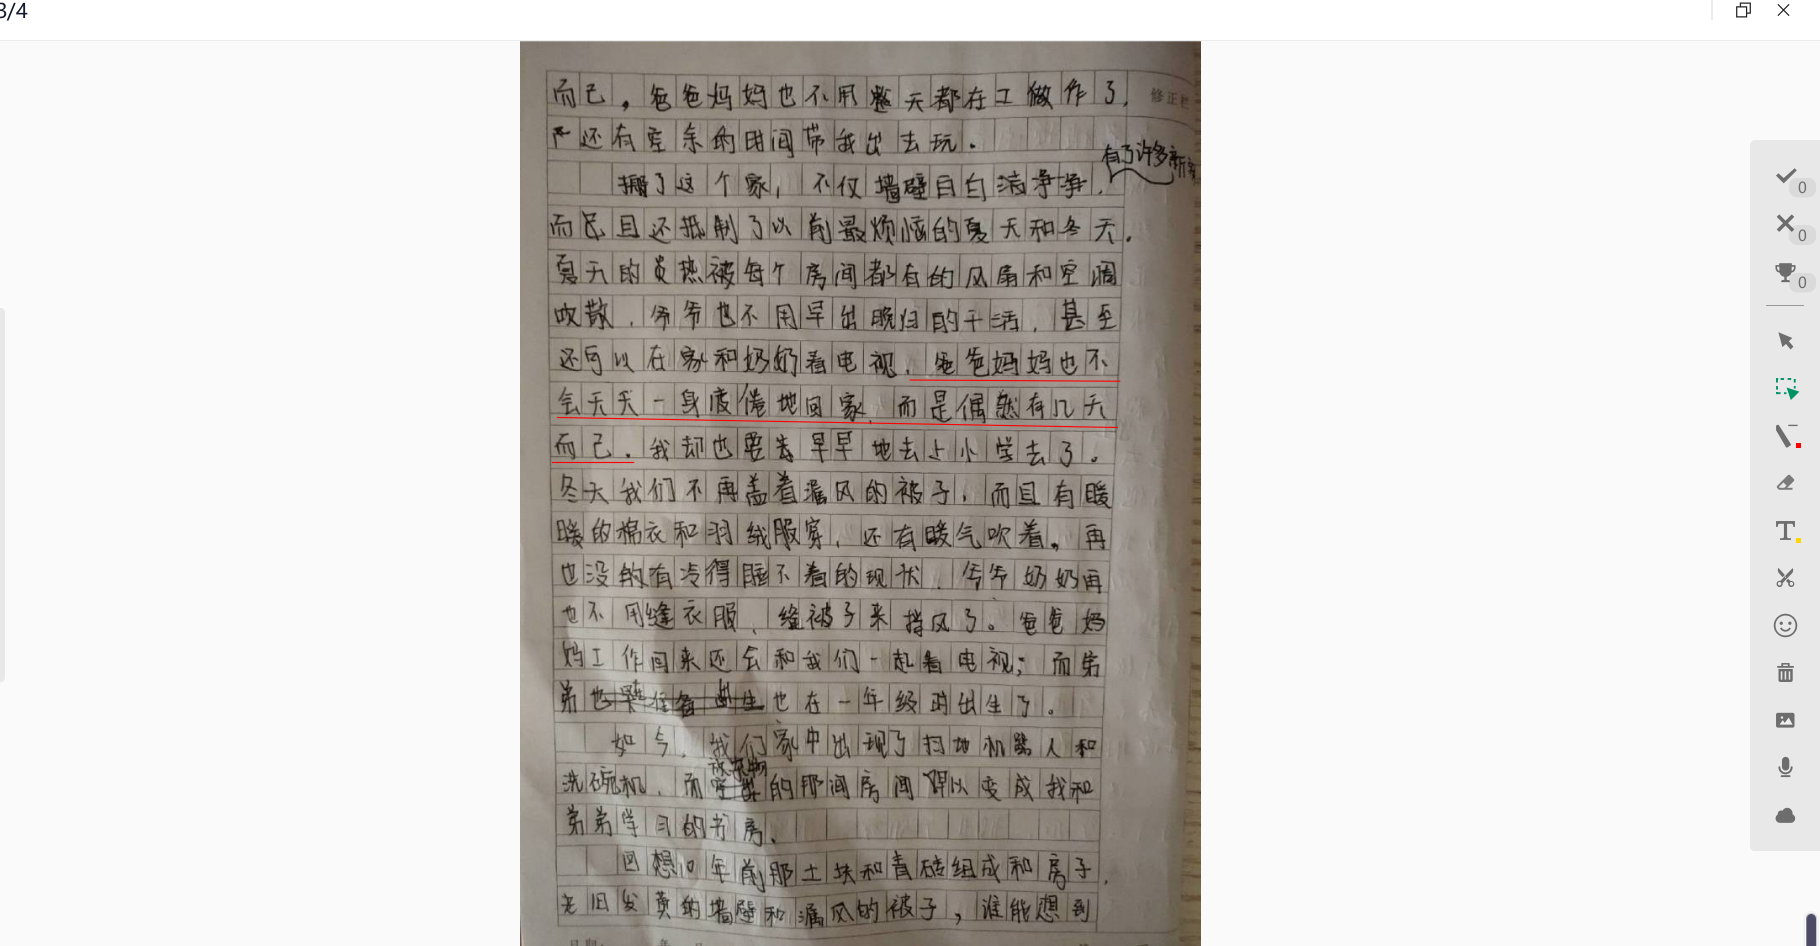 3/4
而己，爸爸妈妈也不用整天都在工做作了，
修正栏
还有空余的时间带我出去玩。
有了许多新
搬了这个家，不仅墙壁白白洁净净，
而且还抵制了以前最烦恼的夏天和冬天。
夏天的炎热被每个房间都有的风扇和空调
吹散，爷爷也不用早出晚归的干活，甚至
还可以在家和奶奶看电视，爸爸妈妈也不
会天天一身疲倦地回家，而是偶然有几天
而己。我却也要去早早地去上小学去了。
冬天我们不再盖着漏风的被子，而且有暖
暖的棉衣和羽绒服穿，还有暖气吹着。再
也没的有冷得睡不着的现状，爷爷奶奶再
也不用缝衣服、缝被子来挡风了。爸爸妈
妈工作回来还会和我们一起看电视；而弟
弟也在一年级时出生了。
如今，我们家中出现了扫地机器人和
洗碗机，而放杂物的那间房间得以变成我和
弟弟学习的书房。
回想10年前那土块和青砖组成和房子，
老旧发黄的墙壁和漏风的被子，谁能想到
0
0
0